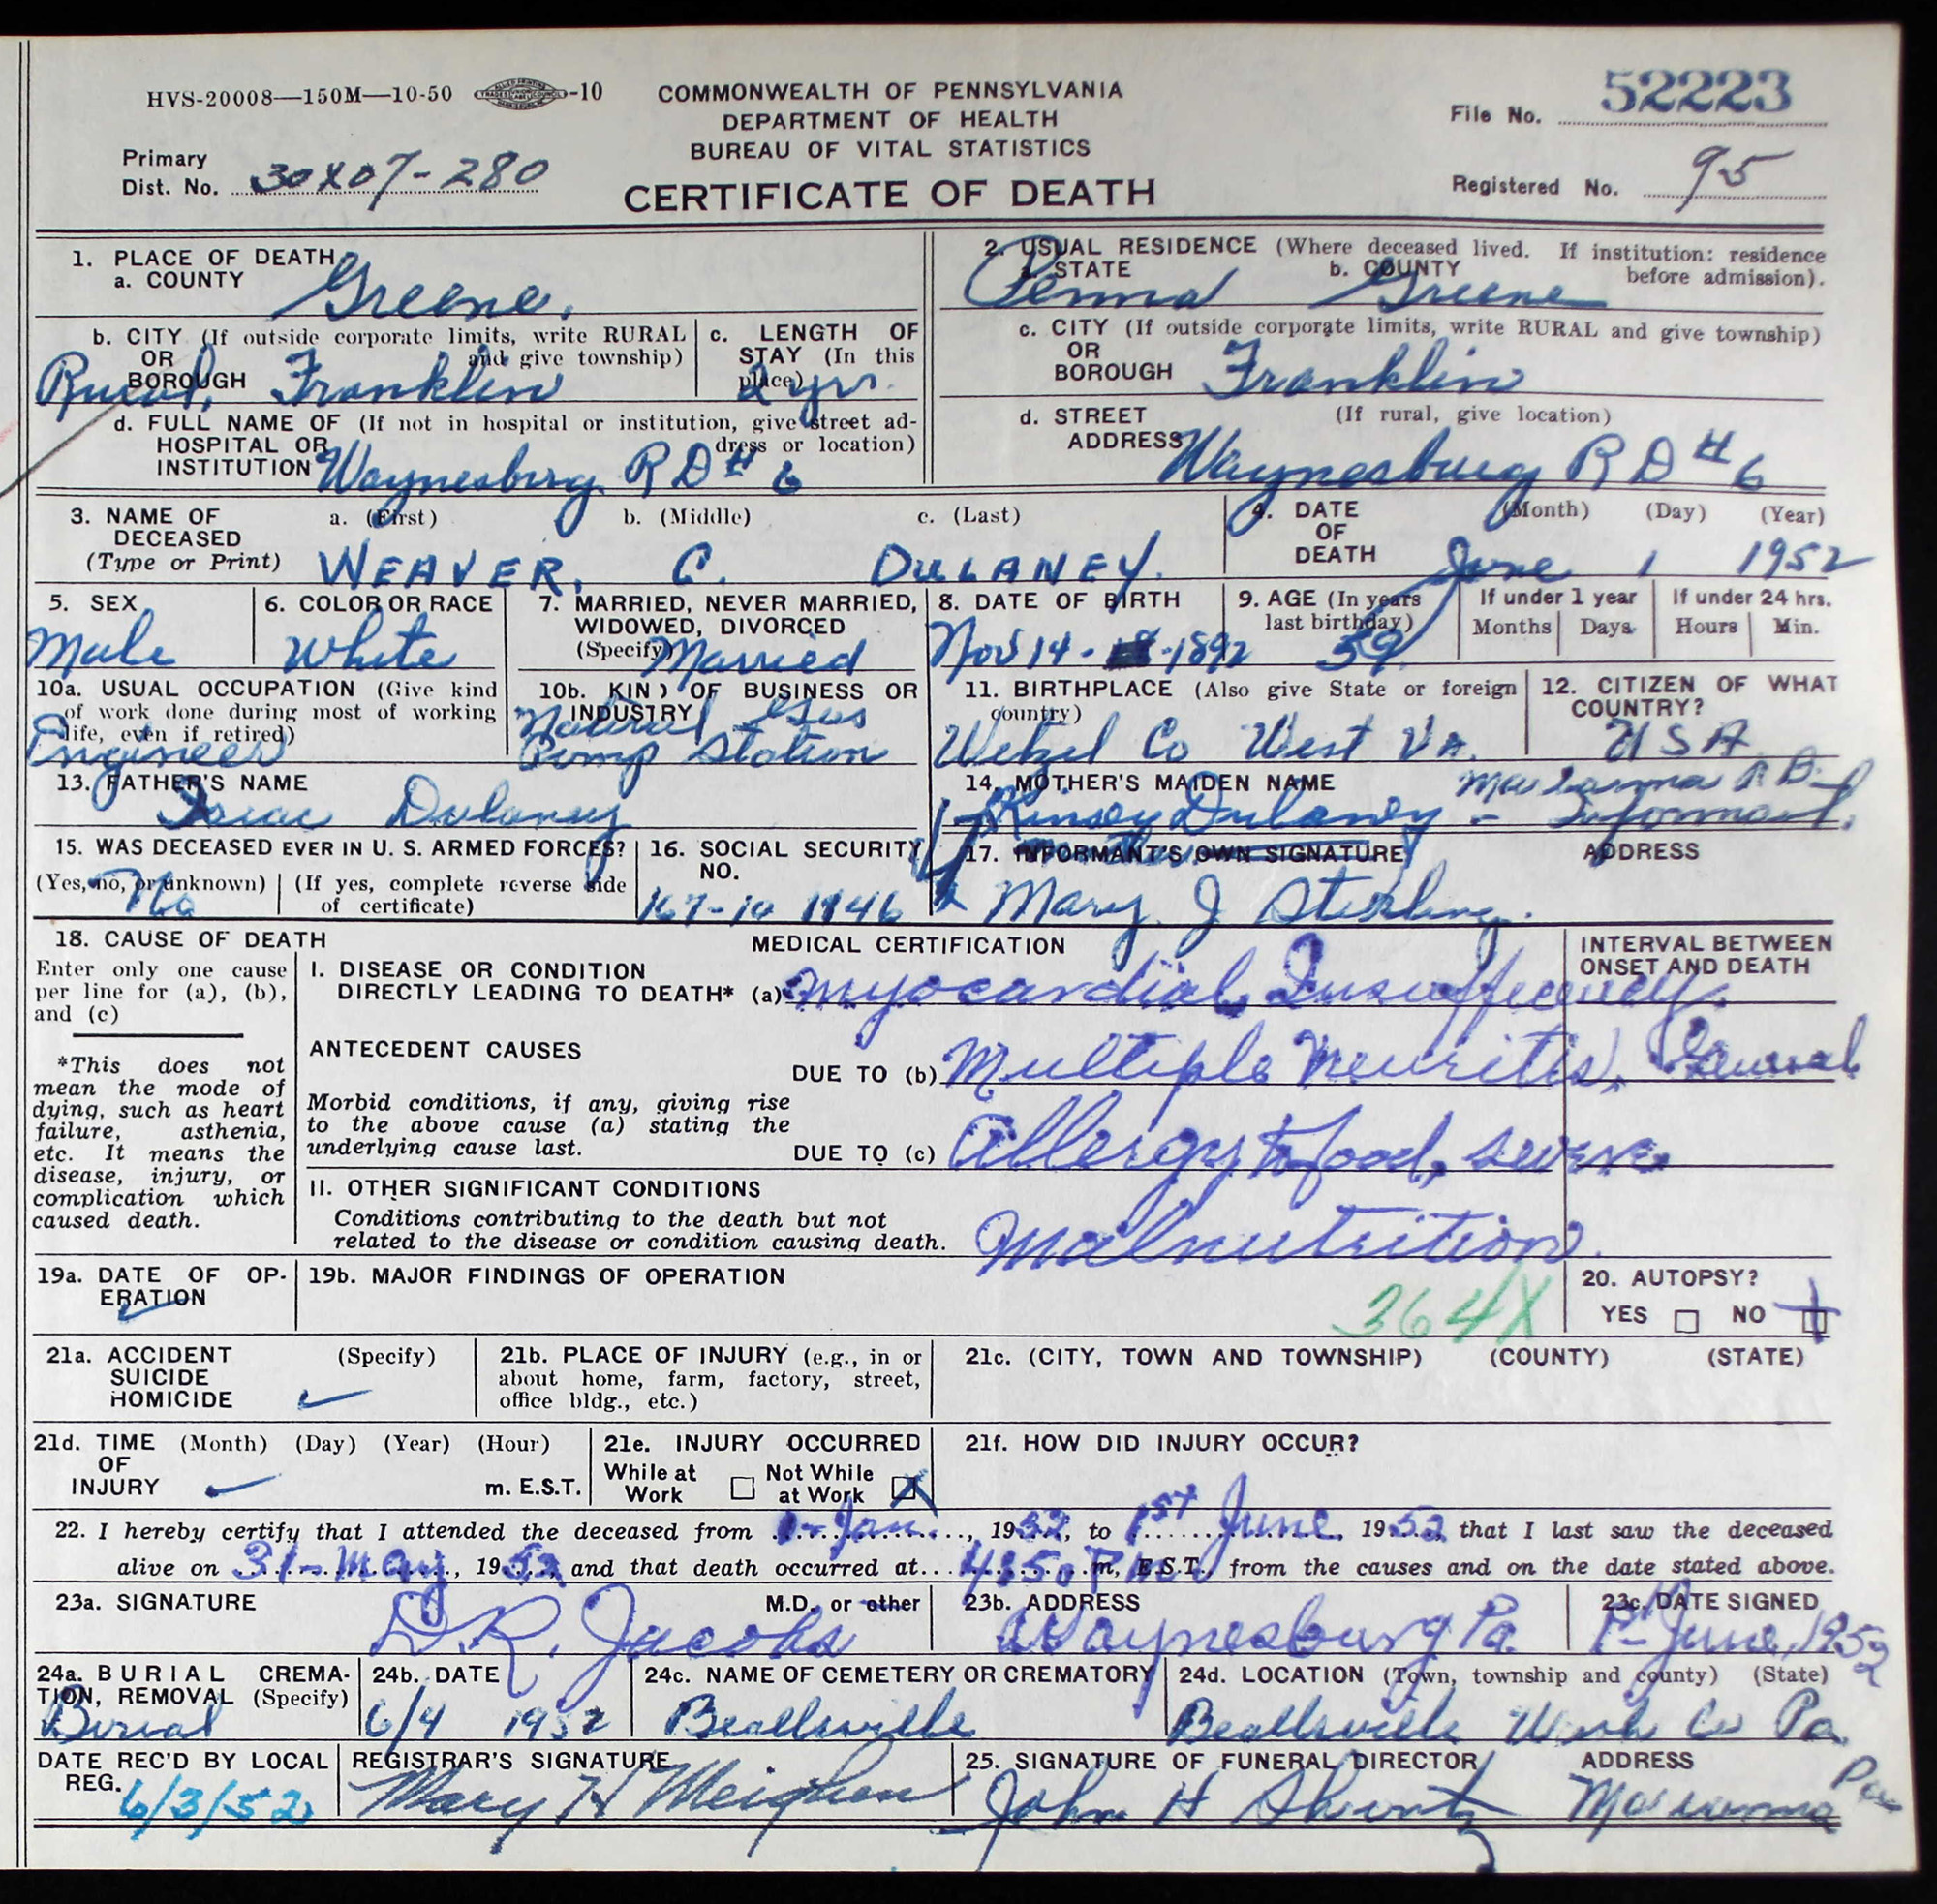 HVS-20008—150M—10-50 -10
COMMONWEALTH OF PENNSYLVANIA
DEPARTMENT OF HEALTH
BUREAU OF VITAL STATISTICS
CERTIFICATE OF DEATH
File No. 52223
Primary
Dist. No. 30X07-280
Registered No. 95
1. PLACE OF DEATH
a. COUNTY Greene.
2. USUAL RESIDENCE (Where deceased lived. If institution: residence before admission).
a. STATE Penna b. COUNTY Greene
b. CITY (If outside corporate limits, write RURAL
OR and give township)
BOROUGH Rural, Franklin
c. LENGTH OF
STAY (In this
place) 2 yrs.
c. CITY (If outside corporate limits, write RURAL and give township)
OR
BOROUGH Franklin
d. FULL NAME OF (If not in hospital or institution, give street ad-
HOSPITAL OR dress or location)
INSTITUTION Waynesburg R D # 6
d. STREET (If rural, give location)
ADDRESS Waynesburg R D # 6
3. NAME OF a. (First) b. (Middle) c. (Last)
DECEASED
(Type or Print) WEAVER, C. DULANEY.
4. DATE (Month) (Day) (Year)
OF
DEATH June 1 1952
5. SEX
Male
6. COLOR OR RACE
White
7. MARRIED, NEVER MARRIED,
WIDOWED, DIVORCED
(Specify) Married
8. DATE OF BIRTH
Nov 14 - 1892
9. AGE (In years
last birthday)
59
If under 1 year
Months Days
If under 24 hrs.
Hours Min.
10a. USUAL OCCUPATION (Give kind
of work done during most of working
life, even if retired)
Engineer
10b. KIND OF BUSINESS OR
INDUSTRY
Natural Gas
Pump Station
11. BIRTHPLACE (Also give State or foreign
country)
Wetzel Co West Va.
12. CITIZEN OF WHAT
COUNTRY?
USA
13. FATHER'S NAME
Isaac Dulaney
14. MOTHER'S MAIDEN NAME Marianna R D
Kinsey Dulaney - Informant.
15. WAS DECEASED EVER IN U. S. ARMED FORCES?
(Yes, no, or unknown) (If yes, complete reverse side
of certificate)
No
16. SOCIAL SECURITY
NO.
167-10 1946
17. INFORMANT'S OWN SIGNATURE ADDRESS
Mary J Sterling.
18. CAUSE OF DEATH
MEDICAL CERTIFICATION
INTERVAL BETWEEN
ONSET AND DEATH
Enter only one cause
per line for (a), (b),
and (c)
*This does not
mean the mode of
dying, such as heart
failure, asthenia,
etc. It means the
disease, injury, or
complication which
caused death.
I. DISEASE OR CONDITION
DIRECTLY LEADING TO DEATH* (a) Myocardial Insufficiency.
ANTECEDENT CAUSES
DUE TO (b) Multiple Neuritis, General
Morbid conditions, if any, giving rise
to the above cause (a) stating the
underlying cause last.
DUE TO (c) Allergy to food, severe
II. OTHER SIGNIFICANT CONDITIONS
Conditions contributing to the death but not
related to the disease or condition causing death.
Malnutrition.
19a. DATE OF OP-
ERATION
19b. MAJOR FINDINGS OF OPERATION
364X
20. AUTOPSY?
YES NO
21a. ACCIDENT (Specify)
SUICIDE
HOMICIDE
21b. PLACE OF INJURY (e.g., in or
about home, farm, factory, street,
office bldg., etc.)
21c. (CITY, TOWN AND TOWNSHIP) (COUNTY) (STATE)
21d. TIME (Month) (Day) (Year) (Hour)
OF
INJURY m. E.S.T.
21e. INJURY OCCURRED
While at Work Not While at Work
21f. HOW DID INJURY OCCUR?
22. I hereby certify that I attended the deceased from 1-Jan., 1952, to 1st June, 1952, that I last saw the deceased
alive on 31-May, 1952, and that death occurred at m, E.S.T., from the causes and on the date stated above.
23a. SIGNATURE M.D. or other
D.R. Jacobs
23b. ADDRESS
Waynesburg Pa.
23c. DATE SIGNED
1st June, 1952
24a. BURIAL CREMA-
TION, REMOVAL (Specify)
Burial
24b. DATE
6/4 1952
24c. NAME OF CEMETERY OR CREMATORY
Beallsville
24d. LOCATION (Town, township and county) (State)
Beallsville Wash Co Pa.
DATE REC'D BY LOCAL
REG. 6/3/52
REGISTRAR'S SIGNATURE
Mary H Meighen
25. SIGNATURE OF FUNERAL DIRECTOR ADDRESS
John H Shontz Marianna Pa